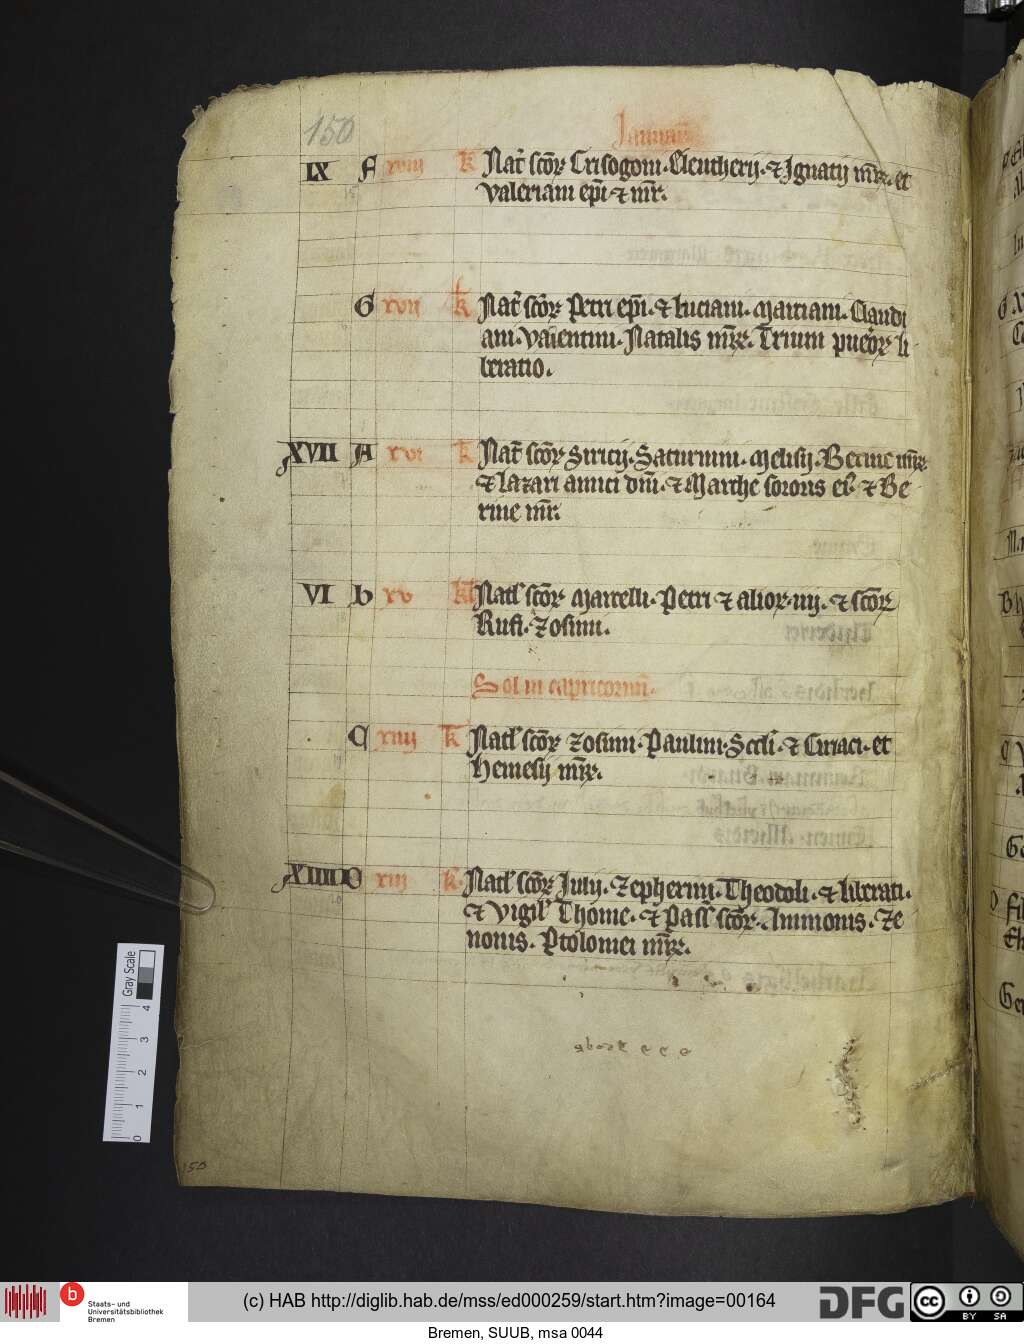 150
Januarij
IX F xviij k Nat̄ scōꝝ Crisogoni · Eleutherij · ⁊ Ignatij m̄rꝝ · et
Valeriani ep̄i ⁊ mr̄.
G xvij k Nat̄ scōꝝ Petri ep̄i · ⁊ Luciani · Marciani · Claudi
ani · Valentini · Natalis m̄rꝝ. Trium pueroꝝ li
beratio.
XVII A xvi k Nat̄ scōꝝ Siricij · Saturnini · Melisij · Becine m̄rꝝ.
⁊ Lazari amici dn̄i · ⁊ Marthe sororis ei⁹ ⁊ Be
rine mr̄.
VI b xv kl Natl̄ scōꝝ Marcelli · Petri ⁊ alioꝝ · iiij · ⁊ scōꝝ
Rufi · Zosimi.
Sol in capricornū.
C xiiij k Natl̄ scōꝝ Zosimi · Paulini · Scdi · ⁊ Ciriaci · et
Hemesij m̄rꝝ.
XIIII D xiij k Natl̄ scōꝝ Julij · Zepherini · Theodoli · ⁊ liberati ·
⁊ Vigil̄ Thome · ⁊ Pass̄ scōꝝ · Ammonis · Ze
nonis · Ptolomei m̄rꝝ.
150
Gray Scale
0 1 2 3 4
b Staats- und
Universitätsbibliothek
Bremen
(c) HAB http://diglib.hab.de/mss/ed000259/start.htm?image=00164
DFG
cc BY SA
Bremen, SUUB, msa 0044